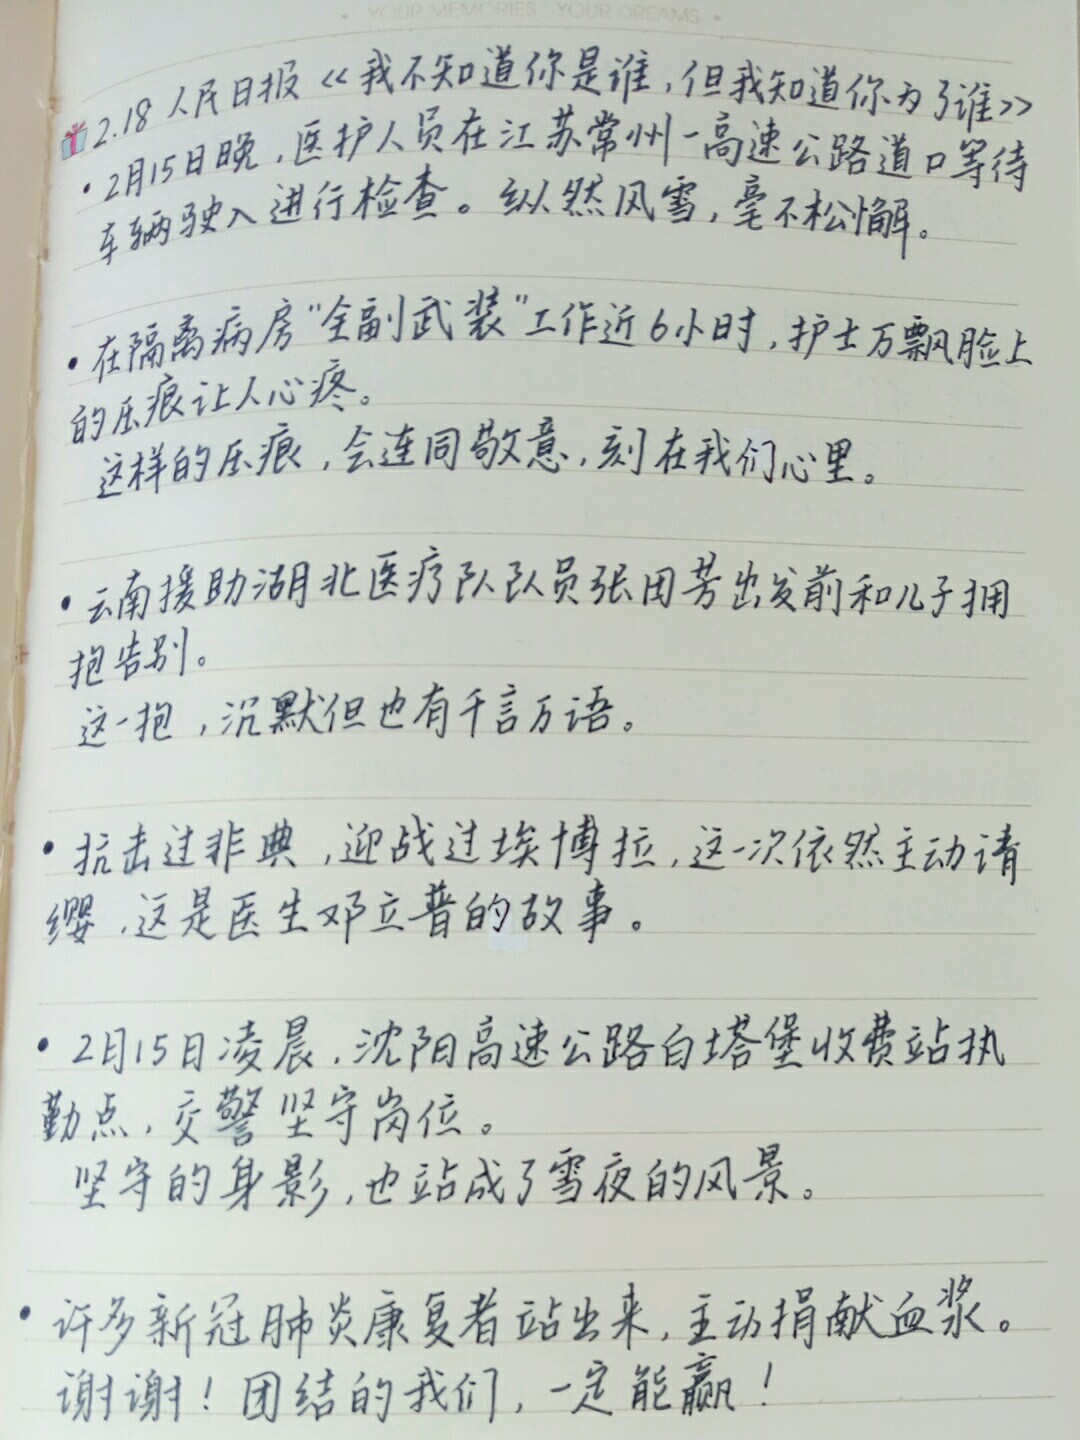 YOUR MEMORIES YOUR DREAMS
2.18 人民日报《我不知道你是谁,但我知道你为了谁》
·2月15日晚,医护人员在江苏常州一高速公路道口等待
车辆驶入进行检查。纵然风雪,毫不松懈。
·在隔离病房"全副武装"工作近6小时,护士万飘脸上
的压痕让人心疼。
这样的压痕,会连同敬意,刻在我们心里。
·云南援助湖北医疗队队员张田芳出发前和儿子拥
抱告别。
这一抱,沉默但也有千言万语。
·抗击过非典,迎战过埃博拉,这一次依然主动请
缨,这是医生邓立普的故事。
·2月15日凌晨,沈阳高速公路白塔堡收费站执
勤点,交警坚守岗位。
坚守的身影,也站成了雪夜的风景。
·许多新冠肺炎康复者站出来,主动捐献血浆。
谢谢!团结的我们,一定能赢!